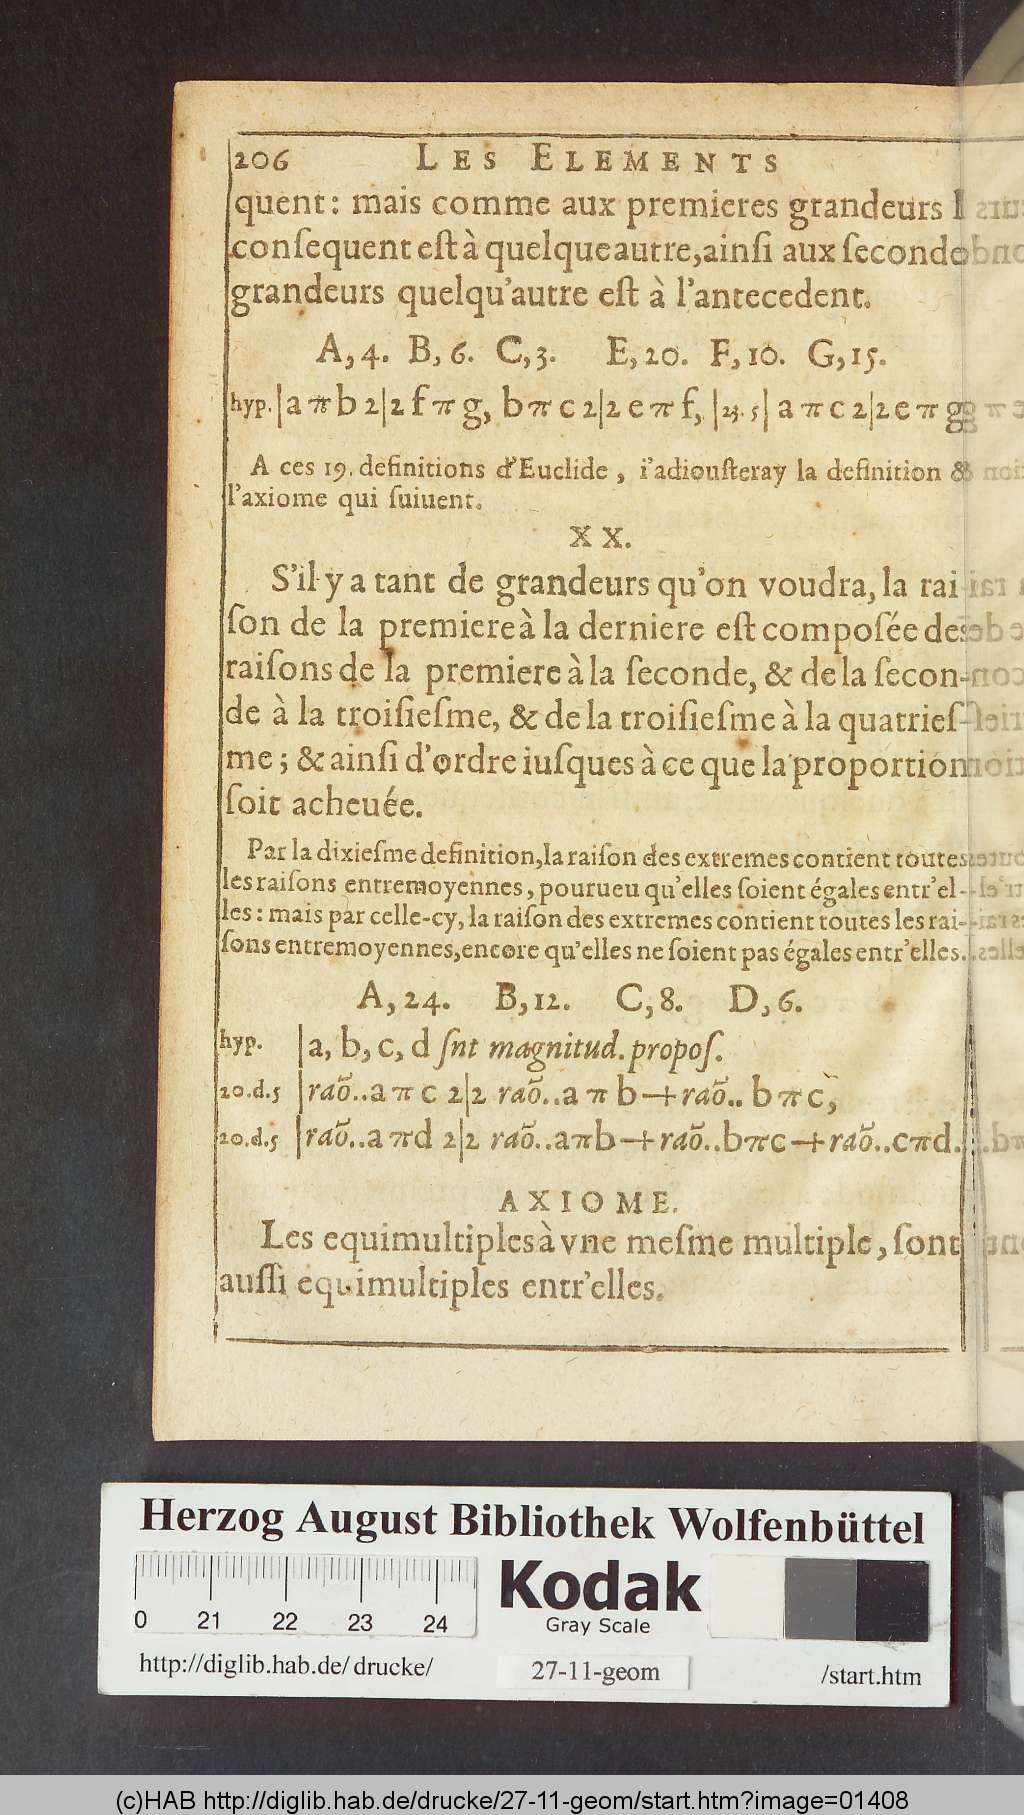 206 LES ELEMENTS
quent: mais comme aux premieres grandeurs l
conſequent eſt à quelque autre, ainſi aux ſecondes
grandeurs quelqu'autre eſt à l'antecedent.
A, 4. B, 6. C, 3. E, 20. F, 10. G, 15.
hyp. | a π b 2|2 f π g, b π c 2|2 e π f, | 23. 5 | a π c 2|2 e π g
A ces 19. definitions d'Euclide, i'adiouſteray la definition &
l'axiome qui ſuiuent.
XX.
S'il y a tant de grandeurs qu'on voudra, la rai-
ſon de la premiere à la derniere eſt compoſée des
raiſons de la premiere à la ſeconde, & de la ſecon-
de à la troiſieſme, & de la troiſieſme à la quatrieſ-
me; & ainſi d'ordre iuſques à ce que la proportion
ſoit acheuée.
Par la dixieſme definition, la raiſon des extremes contient toutes
les raiſons entremoyennes, pourueu qu'elles ſoient égales entr'el-
les: mais par celle-cy, la raiſon des extremes contient toutes les rai-
ſons entremoyennes, encore qu'elles ne ſoient pas égales entr'elles.
A, 24. B, 12. C, 8. D, 6.
hyp. | a, b, c, d ſnt magnitud. propoſ.
20.d.5 | raõ..a π c 2|2 raõ..a π b + raõ.. b π c,
20.d.5 | raõ..a π d 2|2 raõ..a π b + raõ..b π c + raõ..c π d.
AXIOME.
Les equimultiples à vne meſme multiple, ſont
auſſi equimultiples entr'elles.
Herzog August Bibliothek Wolfenbüttel
0 21 22 23 24
Kodak
Gray Scale
http://diglib.hab.de/drucke/ 27-11-geom /start.htm
(c)HAB http://diglib.hab.de/drucke/27-11-geom/start.htm?image=01408